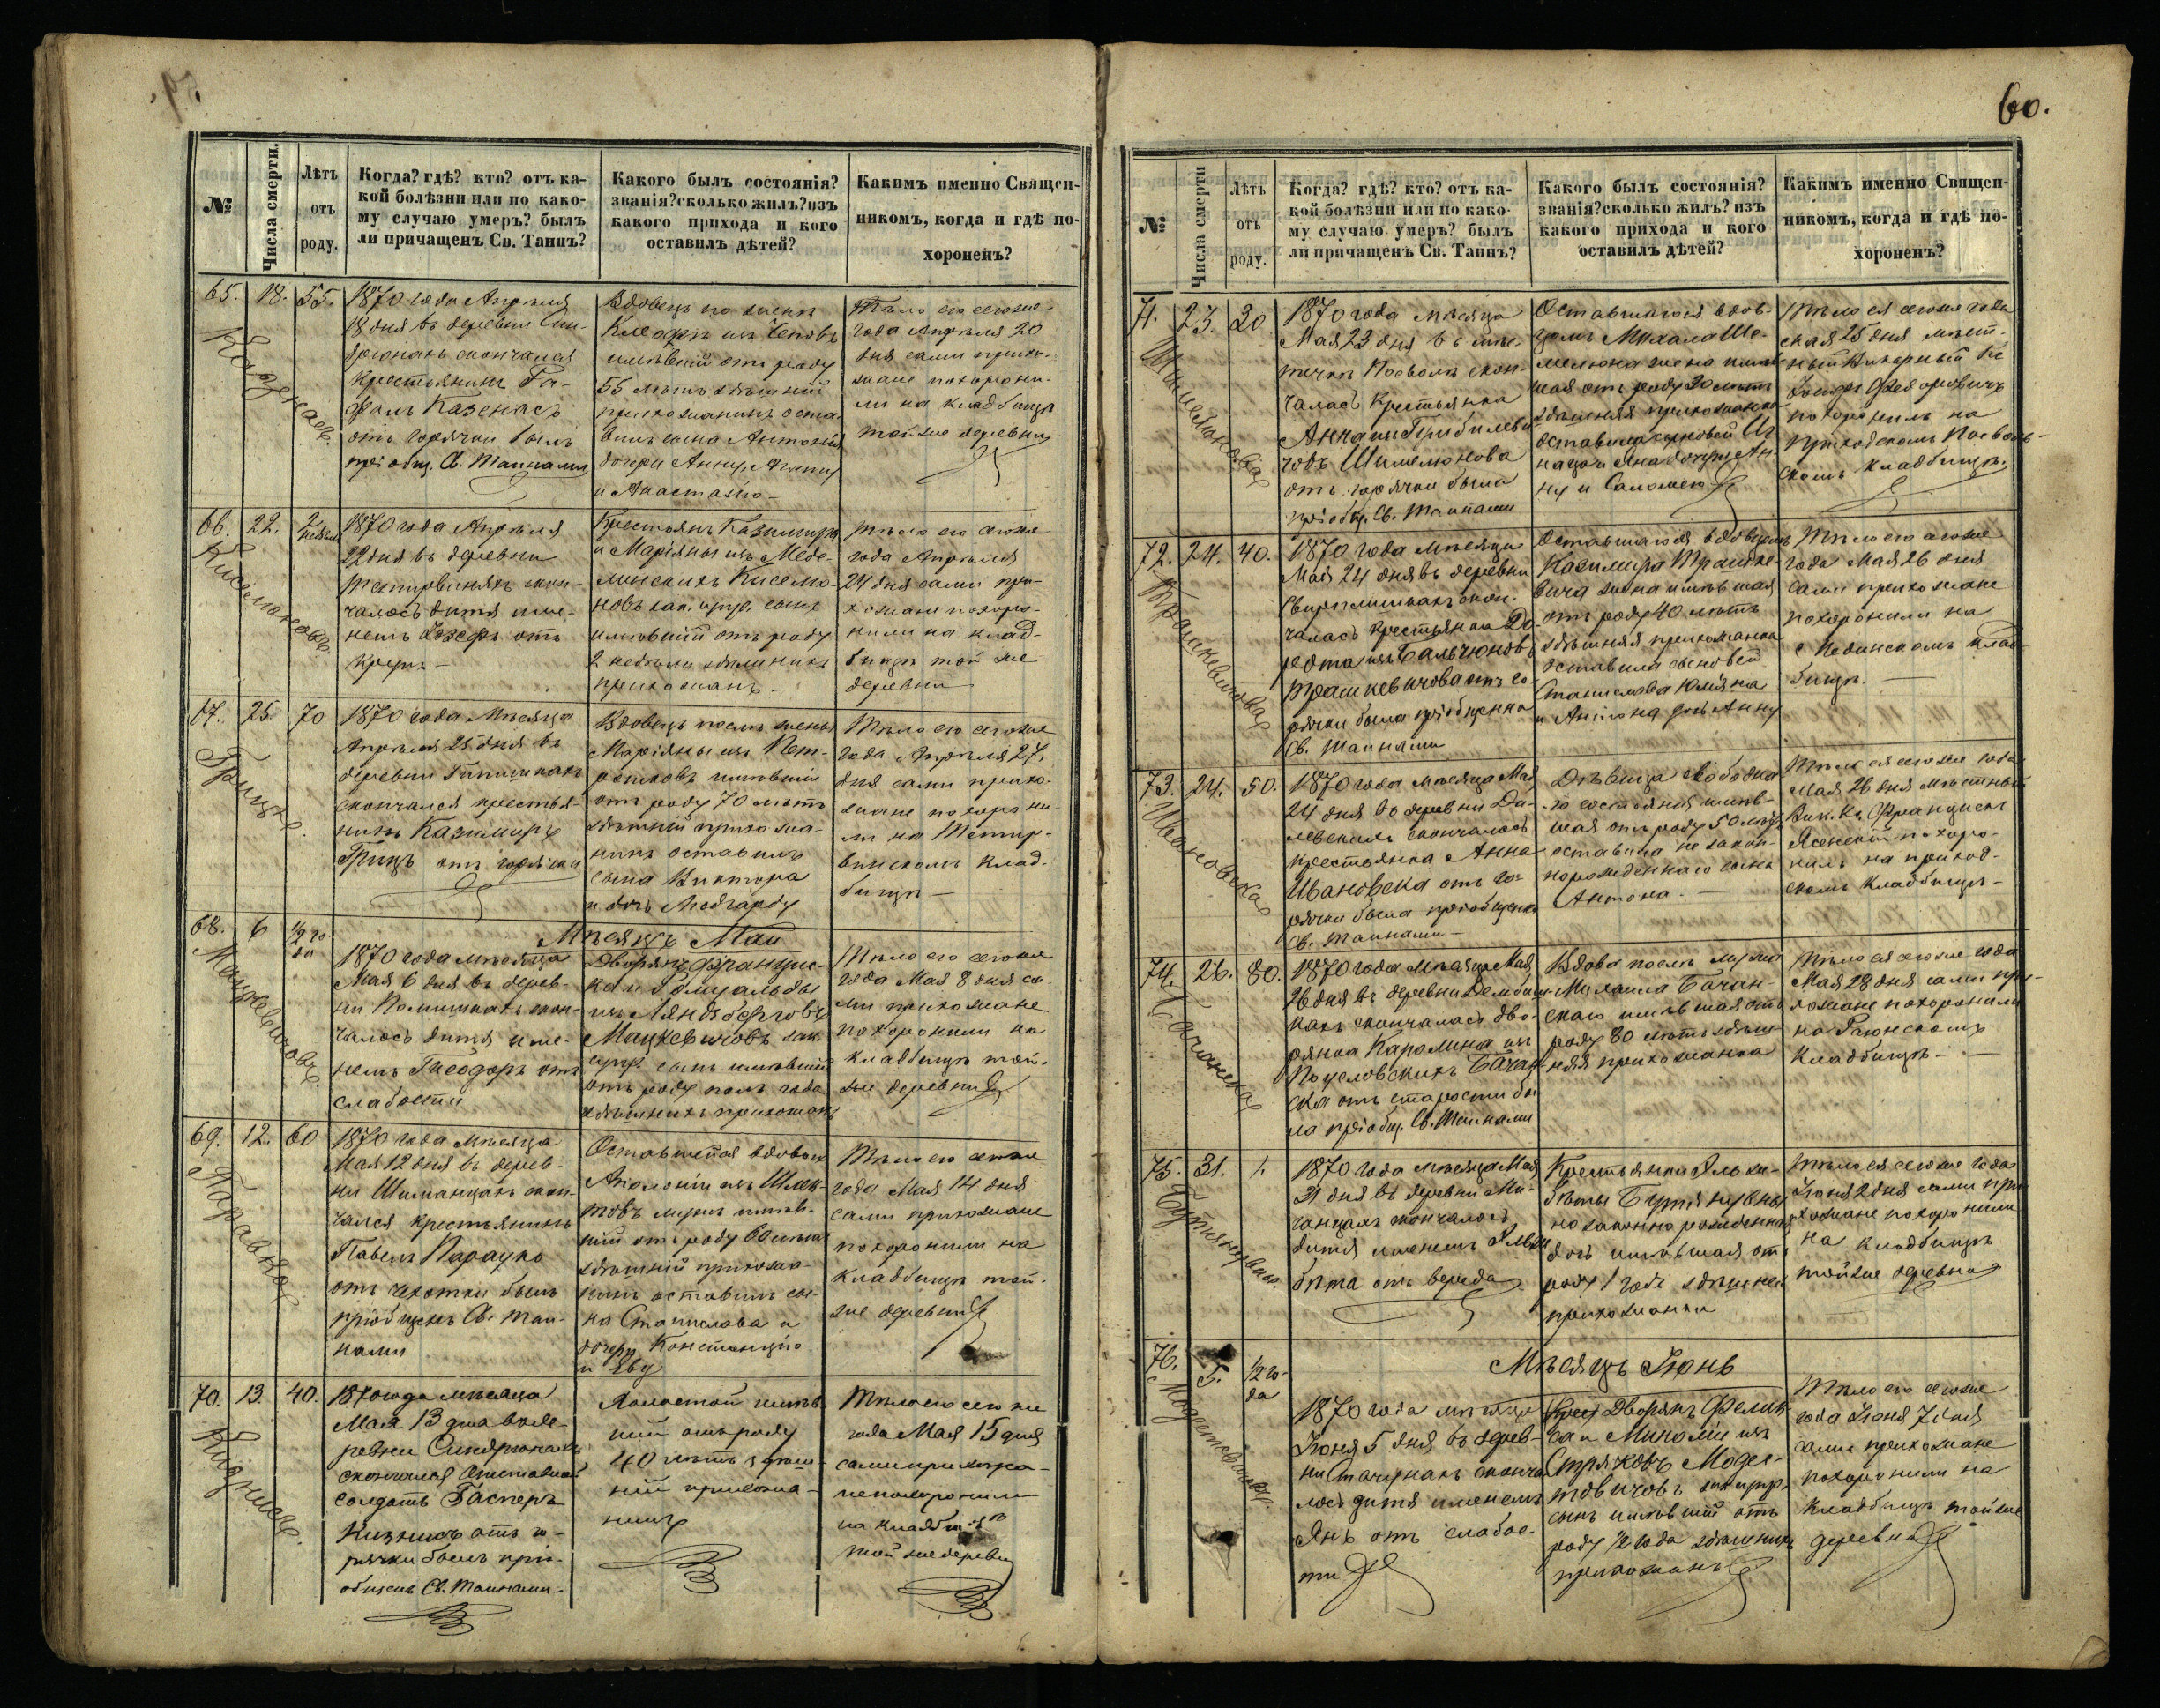 60.
№
Числа смерти.
Лѣтъ
отъ
роду.
Когда? гдѣ? кто? отъ ка-
кой болѣзни или по како-
му случаю умеръ? былъ
ли причащенъ Св. Таинъ?
Какого былъ состоянія?
званія? сколько жилъ? изъ
какого прихода и кого
оставилъ дѣтей?
Какимъ именно Священ-
никомъ, когда и гдѣ по-
хороненъ?
65. 18. 55.
1870 года Апрѣля
18 дня въ деревни
скончался
крестьянинъ Га-
фалъ Казенасъ
отъ горячки былъ
пріобщ. Св. Тайнами
Вдовецъ по женѣ
Клеофѣ изъ
имѣвшій отъ роду
55 лѣтъ здѣшній
прихожанинъ оста-
вилъ сына Антонія
дочери Анну, Агату
и Анастазію
Тѣло его сего же
года Апрѣля 20
дня сами прихо-
жане похорони-
ли на кладбищѣ
той же деревни
66. 22. 2 недѣли
1870 года Апрѣля
22 дня въ деревни
скон-
чалось дитя име-
немъ Іозефъ отъ
Крестьянъ Казимира
и Маріяны изъ
Кисѣлю-
новъ зак. супр. сынъ
имѣвшій отъ роду
2 недѣли здѣшнихъ
прихожанъ
Тѣло его сего же
года Апрѣля
24 дня сами при-
хожане похоро-
нили на клад-
бищѣ той же
деревни
67. 25. 70
Грицъ.
1870 года Мѣсяца
Апрѣля 25 дня въ
деревни
скончался крестья-
нинъ Казимиръ
Грицъ отъ горячки
Вдовецъ послѣ жены
Маріяны изъ Пет-
имѣвшій
отъ роду 70 лѣтъ
здѣшній прихожа-
нинъ оставилъ
сына Виктора
и дочь Людгарду
Тѣло его сего же
года Апрѣля 27
дня сами прихо-
жане похорони-
ли на Тетир-
винскомъ клад-
бищѣ
Мѣсяцъ Май
68. 6 1/2 го-
да
Мацкевичовъ.
1870 года мѣсяца
Мая 6 дня въ дерев-
ни скон-
чалось дитя име-
немъ Теодоръ отъ
слабости
Дворянъ Францис-
ка и Ромуальды
изъ Лянсберговъ
Мацкевичовъ зак.
супр. сынъ имѣвшій
отъ роду полъ года
здѣшнихъ прихожанъ
Тѣло его сего же
года Мая 8 дня са-
ми прихожане
похоронили на
кладбищѣ той-
же деревни
69. 12. 60
1870 года мѣсяца
Мая 12 дня въ дерев-
ни Шиманцахъ скон-
чался крестьянинъ
Павелъ Парауко
отъ чехотки былъ
пріобщенъ Св. Тай-
нами
Оставшейся вдовы
Аполоніи изъ
мужъ имѣв-
шій отъ роду 60 лѣтъ
здѣшній прихожа-
нинъ оставилъ сы-
на Станислава и
дочери Констанцію
и Еву
Тѣло его сего же
года Мая 14 дня
сами прихожане
похоронили на
кладбищѣ той-
же деревни
70. 13. 40.
Кизнисъ.
1870 года мѣсяца
Мая 13 дня въ де-
ревни
скончался отставной
солдатъ Гасперъ
Кизнисъ отъ го-
рячки былъ прі-
общенъ Св. Тайнами
Холостой имѣв-
шій отъ роду
40 лѣтъ здѣш-
ній прихожа-
нинъ
Тѣло его сего же
года Мая 15 дня
сами прихожа-
не похоронили
на кладбищѣ
той же деревни
№
Числа смерти
Лѣтъ
отъ
роду.
Когда? гдѣ? кто? отъ ка-
кой болѣзни или по како-
му случаю умеръ? былъ
ли причащенъ Св. Таинъ?
Какого былъ состоянія?
званія? сколько жилъ? изъ
какого прихода и кого
оставилъ дѣтей?
Какимъ именно Священ-
никомъ, когда и гдѣ по-
хороненъ?
71. 23. 30
1870 года мѣсяца
Мая 23 дня въ мѣс-
течкѣ Посволѣ скон-
чалась крестьянка
Анна изъ
отъ горячки была
пріобщ. Св. Тайнами
Оставшагося вдов-
цомъ Михала Ше-
жена имѣв-
шая отъ роду 30 лѣтъ
здѣшняя прихожанка
оставила сыновей Иг-
нація и Яна дочери Ан-
ну и Саломею
Тѣло ея сего же года
Мая 25 дня мѣст-
ный Викарный
похоронилъ на
приходскомъ Посволь-
скомъ кладбищѣ
72. 24. 40.
Трашкевичовая
1870 года Мѣсяца
Мая 24 дня въ деревни
скон-
чалась крестьянка До-
рота изъ Бальчюновъ
Трашкевичова отъ го-
рячки была пріобщенна
Св. Тайнами
Оставшагося вдовцомъ
Казимира Трашке-
вича жена имѣвшая
отъ роду 40 лѣтъ
здѣшняя прихожанка
оставила сыновей
Станислава Юліяна
и Антона дочь Анну
Тѣло его сего же
года Мая 26 дня
сами прихожане
похоронили на
клад-
бищѣ.
73. 24. 50.
Ивановская
1870 года мѣсяца Мая
24 дня въ деревни
скончалась
крестьянка Анна
Ивановска отъ го-
рячки была пріобщенна
Св. Тайнами
Дѣвица свободна-
го состоянія имѣв-
шая отъ роду 50 лѣтъ
оставила не закон-
норожденнаго сына
Антона.
Тѣло ея сего же года
Мая 26 дня Мѣстный
Вик. Кс. Францискъ
похоро-
нилъ на приход-
скомъ кладбищѣ
74. 26. 80.
Бачанская
1870 года Мѣсяца Мая
26 дня въ деревни
скончалась дво-
рянка Каролина изъ
Бачан-
ска отъ старости бы-
ла пріобщ. Св. Тайнами
Вдова послѣ мужа
Михаила Бачан-
скаго имѣвшая отъ
роду 80 лѣтъ здѣш-
няя прихожанка
Тѣло ея сего же года
Мая 28 дня сами при-
хожане похоронили
на
кладбищѣ
75. 31. 1.
1870 года мѣсяца Мая
31 дня въ деревни Ми-
скончалось
дитя именемъ Эльжи-
бѣта отъ вереда
Крестьянки Эльжи-
бѣты
незаконнорожденная
дочь имѣвшая отъ
роду 1 годъ здѣшней
прихожанки
Тѣло ея сего же года
Іюня 2 дня сами при-
хожане похоронили
на кладбищѣ
той же деревни
Мѣсяцъ Іюнь
76. 5. 1/2 го-
да
Модестовичовъ.
1870 года мѣсяца
Іюня 5 дня въ дерев-
ни сконча-
лось дитя именемъ
Янъ отъ слабос-
ти
Дворянъ Фелик-
са и изъ
Модес-
товичовъ зак. супр.
сынъ имѣвшій отъ
роду 1/2 года здѣшнихъ
прихожанъ
Тѣло его сего же
года Іюня 7 дня
сами прихожане
похоронили на
кладбищѣ той же
деревни